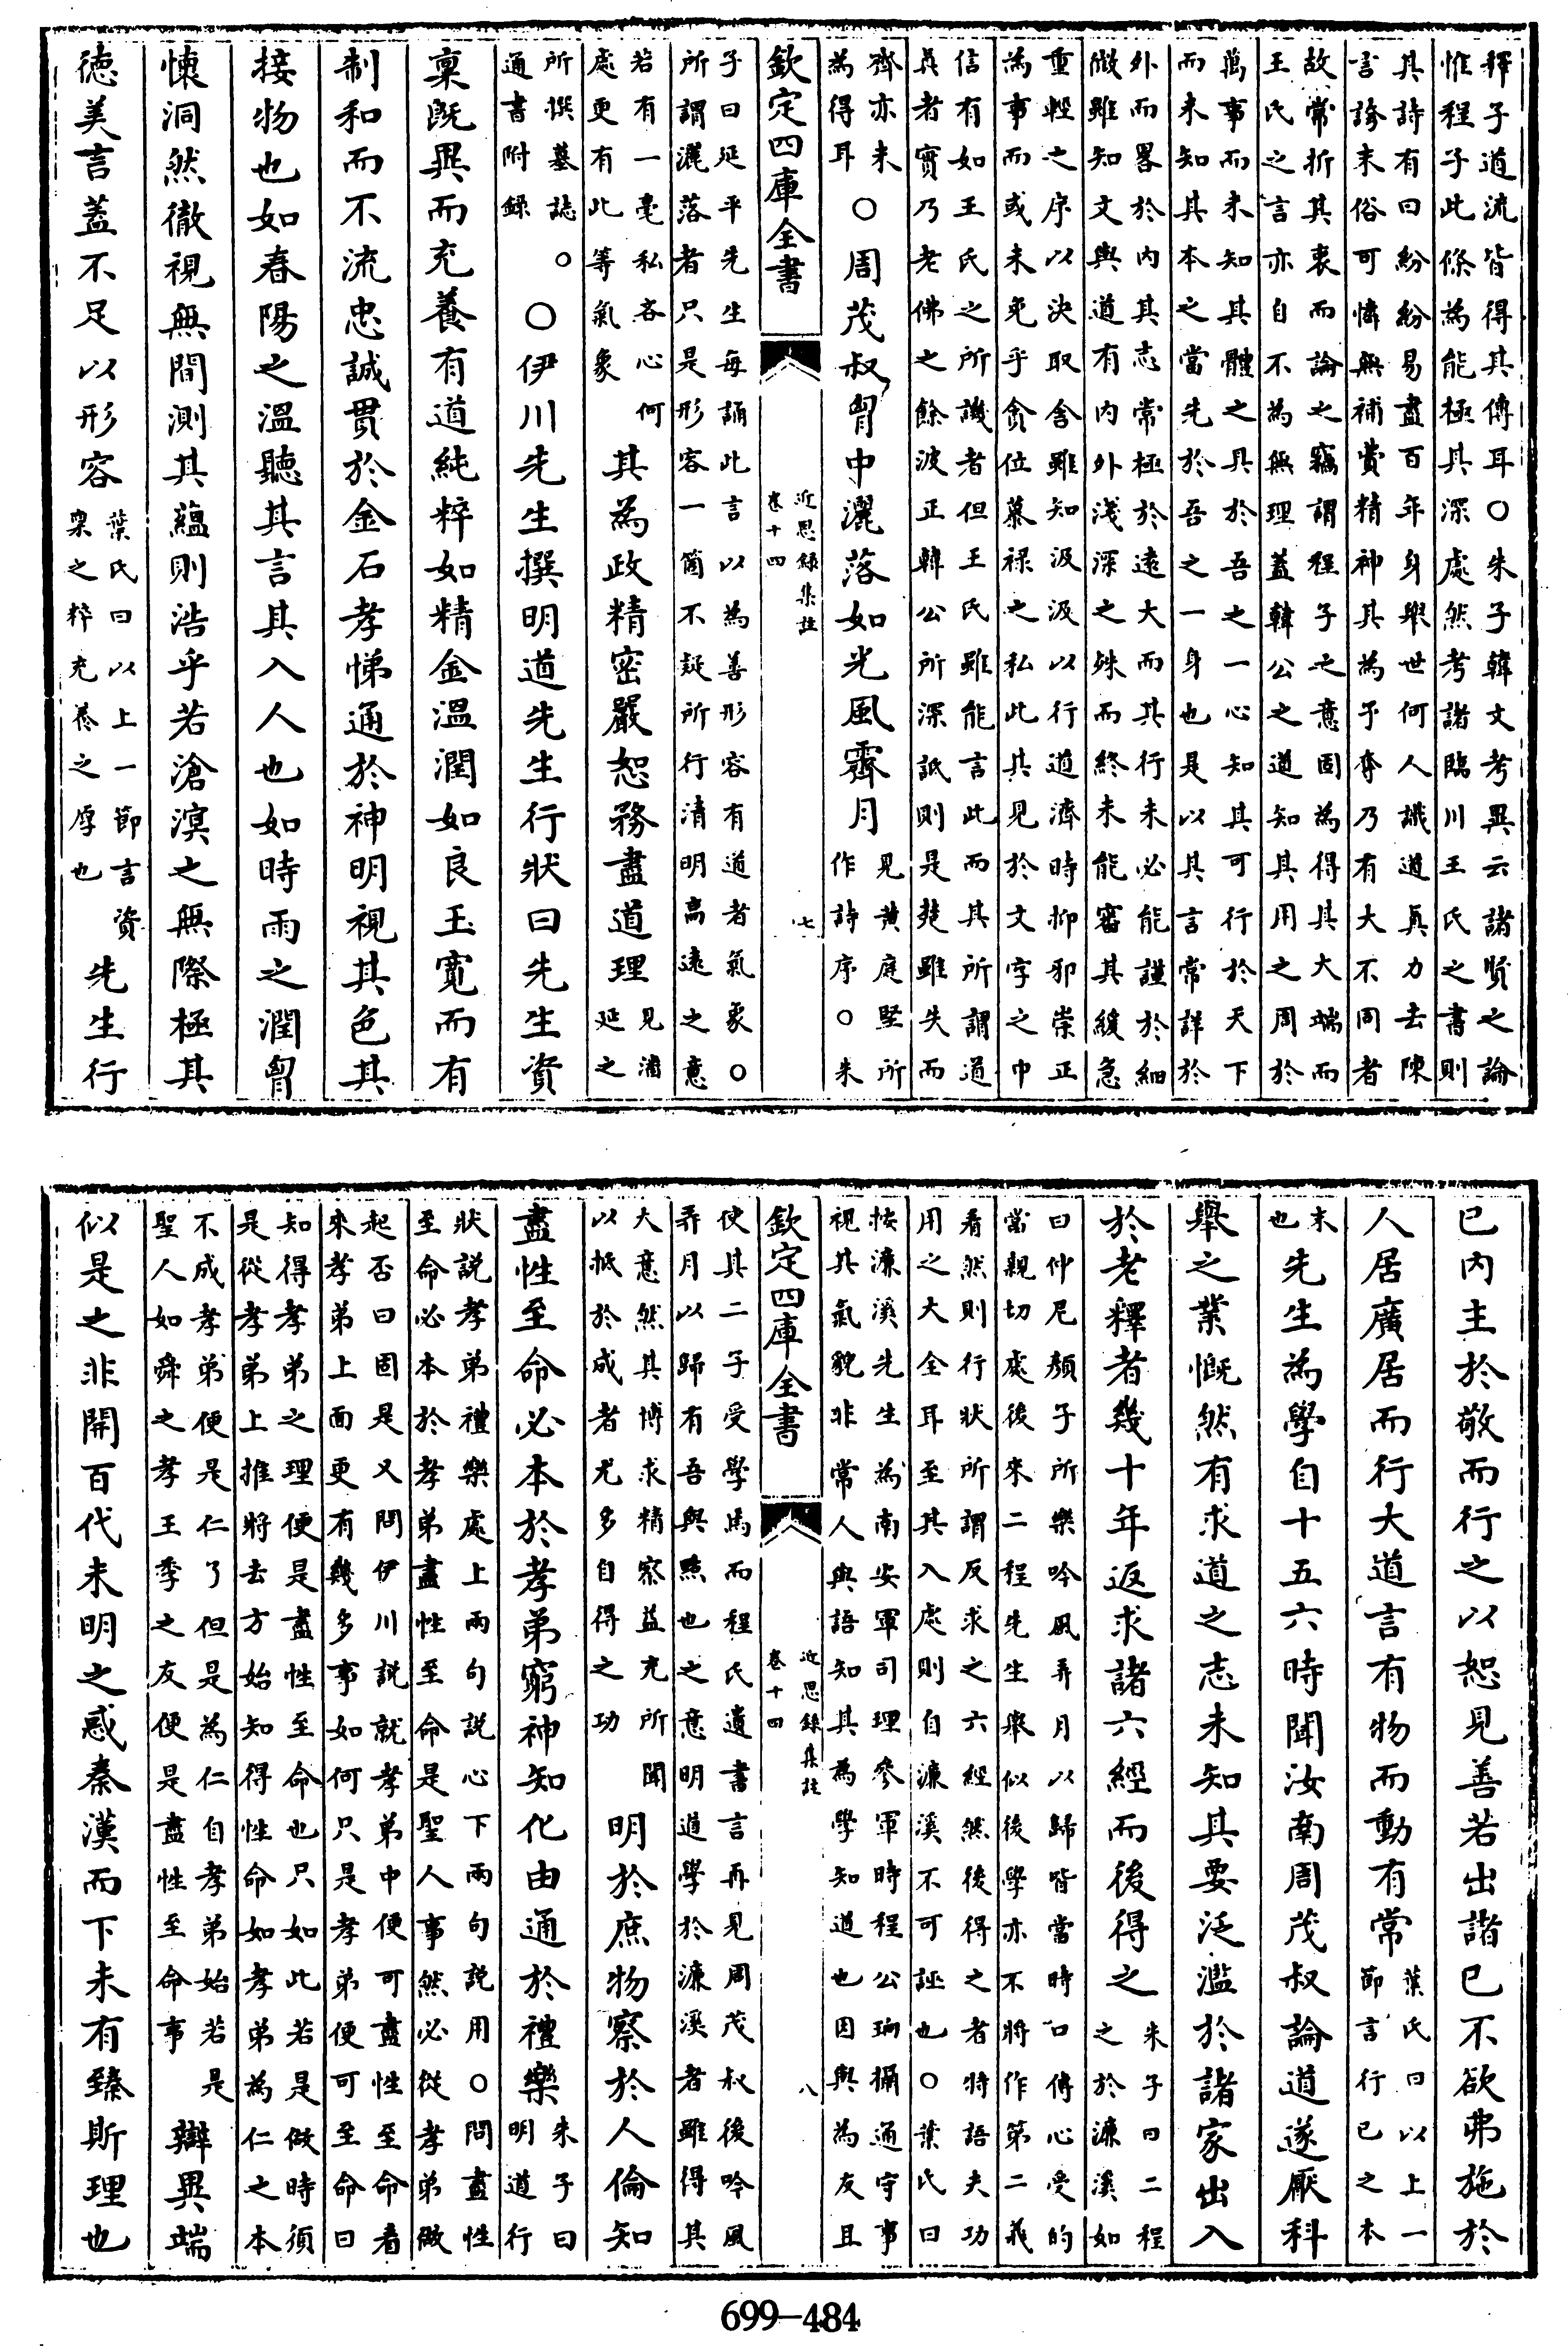 釋子道流皆得其傳耳○朱子韓文考異云諸賢之論
惟程子此條為能極其深處然考諸臨川王氏之書則
其詩有曰紛紛易盡百年身舉世何人識道真力去陳
言誇末俗可憐無補費精神其為予奪乃有大不同者
故常折其衷而論之竊謂程子之意固為得其大端而
王氏之言亦自不為無理蓋韓公之道知其用之周於
萬事而未知其體之具於吾之一心知其可行於天下
而未知其本之當先於吾之一身也是以其言常詳於
外而畧於內其志常極於遠大而其行未必能謹於細
微雖知文與道有內外淺深之殊而終未能審其緩急
重輕之序以決取舍雖知汲汲以行道濟時抑邪崇正
為事而或未免乎貪位慕祿之私此其見於文字之中
信有如王氏之所譏者但王氏雖能言此而其所謂道
真者實乃老佛之餘波正韓公所深詆則是楚雖失而
齊亦未
為得耳
○周茂叔胷中灑落如光風霽月
見黃庭堅所
作詩序○朱
欽定四庫全書
近思錄集註
卷十四
七
子曰延平先生每誦此言以為善形容有道者氣象○
所謂灑落者只是形容一箇不疑所行清明高遠之意
若有一毫私吝心何
處更有此等氣象
其為政精密嚴恕務盡道理
見潘
延之
所撰墓誌○
通書附錄
○伊川先生撰明道先生行狀曰先生資
稟既異而充養有道純粹如精金溫潤如良玉寬而有
制和而不流忠誠貫於金石孝悌通於神明視其色其
接物也如春陽之溫聽其言其入人也如時雨之潤胷
懷洞然徹視無間測其蘊則浩乎若滄溟之無際極其
德美言蓋不足以形容
葉氏曰以上一節言資
稟之粹充養之厚也
先生行
已內主於敬而行之以恕見善若出諸已不欲弗施於
人居廣居而行大道言有物而動有常
葉氏曰以上一
節言行已之本
末
也
先生為學自十五六時聞汝南周茂叔論道遂厭科
舉之業慨然有求道之志未知其要泛濫於諸家出入
於老釋者幾十年返求諸六經而後得之
朱子曰二程
之於濂溪如
曰仲尼顏子所樂吟風弄月以歸皆當時口傳心受的
當親切處後來二程先生舉似後學亦不將作第二義
看然則行狀所謂反求之六經然後得之者特語夫功
用之大全耳至其入處則自濂溪不可誣也○葉氏曰
按濂溪先生為南安軍司理參軍時程公珦攝通守事
視其氣貌非常人與語知其為學知道也因與為友且
欽定四庫全書
近思錄集註
卷十四
八
使其二子受學焉而程氏遺書言再見周茂叔後吟風
弄月以歸有吾與㸃也之意明道學於濂溪者雖得其
大意然其博求精察益充所聞
以抵於成者尤多自得之功
明於庶物察於人倫知
盡性至命必本於孝弟窮神知化由通於禮樂
朱子曰
明道行
狀說孝弟禮樂處上兩句說心下兩句說用○問盡性
至命必本於孝弟盡性至命是聖人事然必從孝弟做
起否曰固是又問伊川說就孝弟中便可盡性至命看
來孝弟上面更有幾多事如何只是孝弟便可至命曰
知得孝弟之理便是盡性至命也只如此若是做時須
是從孝弟上推將去方始知得性命如孝弟為仁之本
不成孝弟便是仁了但是為仁自孝弟始若是
聖人如舜之孝王季之友便是盡性至命事
辯異端
似是之非開百代未明之惑秦漢而下未有臻斯理也
699-484